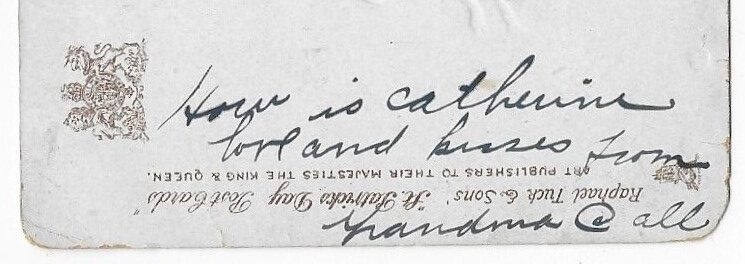 How is catherine
love and kisses from
Grandma C all
Raphael Tuck & Sons' "St. Patrick's Day" Post Cards"
ART PUBLISHERS TO THEIR MAJESTIES THE KING & QUEEN.